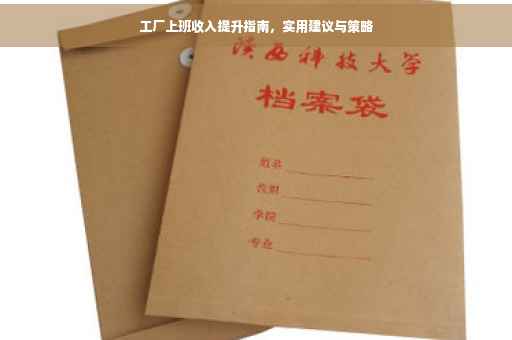 工厂上班收入提升指南，实用建议与策略
陕西科技大学
档案袋
姓名
学院
专业